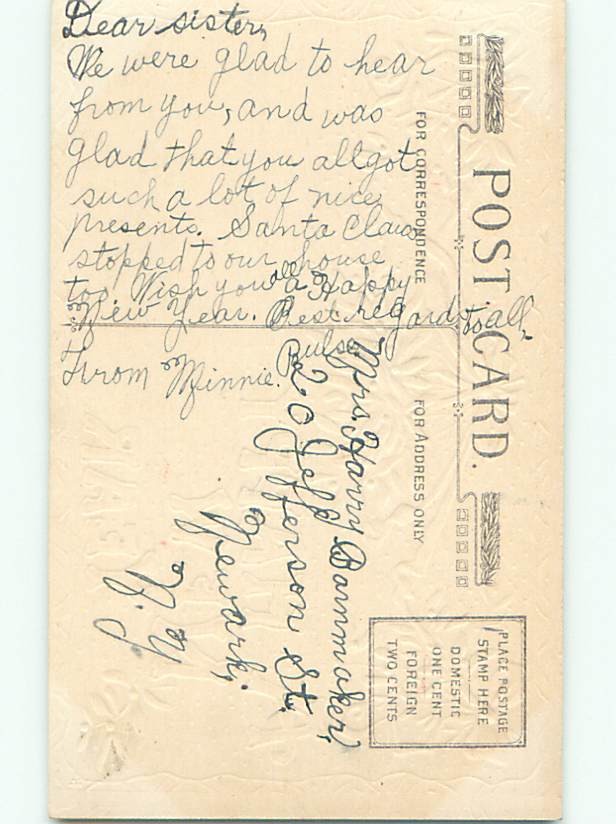 Dear sister,
We were glad to hear
from you, and was
glad that you all got
such a lot of nice
presents. Santa Claus
stopped to our house
too. Wish you all a Happy
New Year. Best regards to all.
From Minnie.
POST CARD.
FOR CORRESPONDENCE
FOR ADDRESS ONLY
PLACE POSTAGE
STAMP HERE
DOMESTIC
ONE CENT
FOREIGN
TWO CENTS
Mrs. Harry Bannmaker,
20 Jefferson St.
Newark,
N. Y